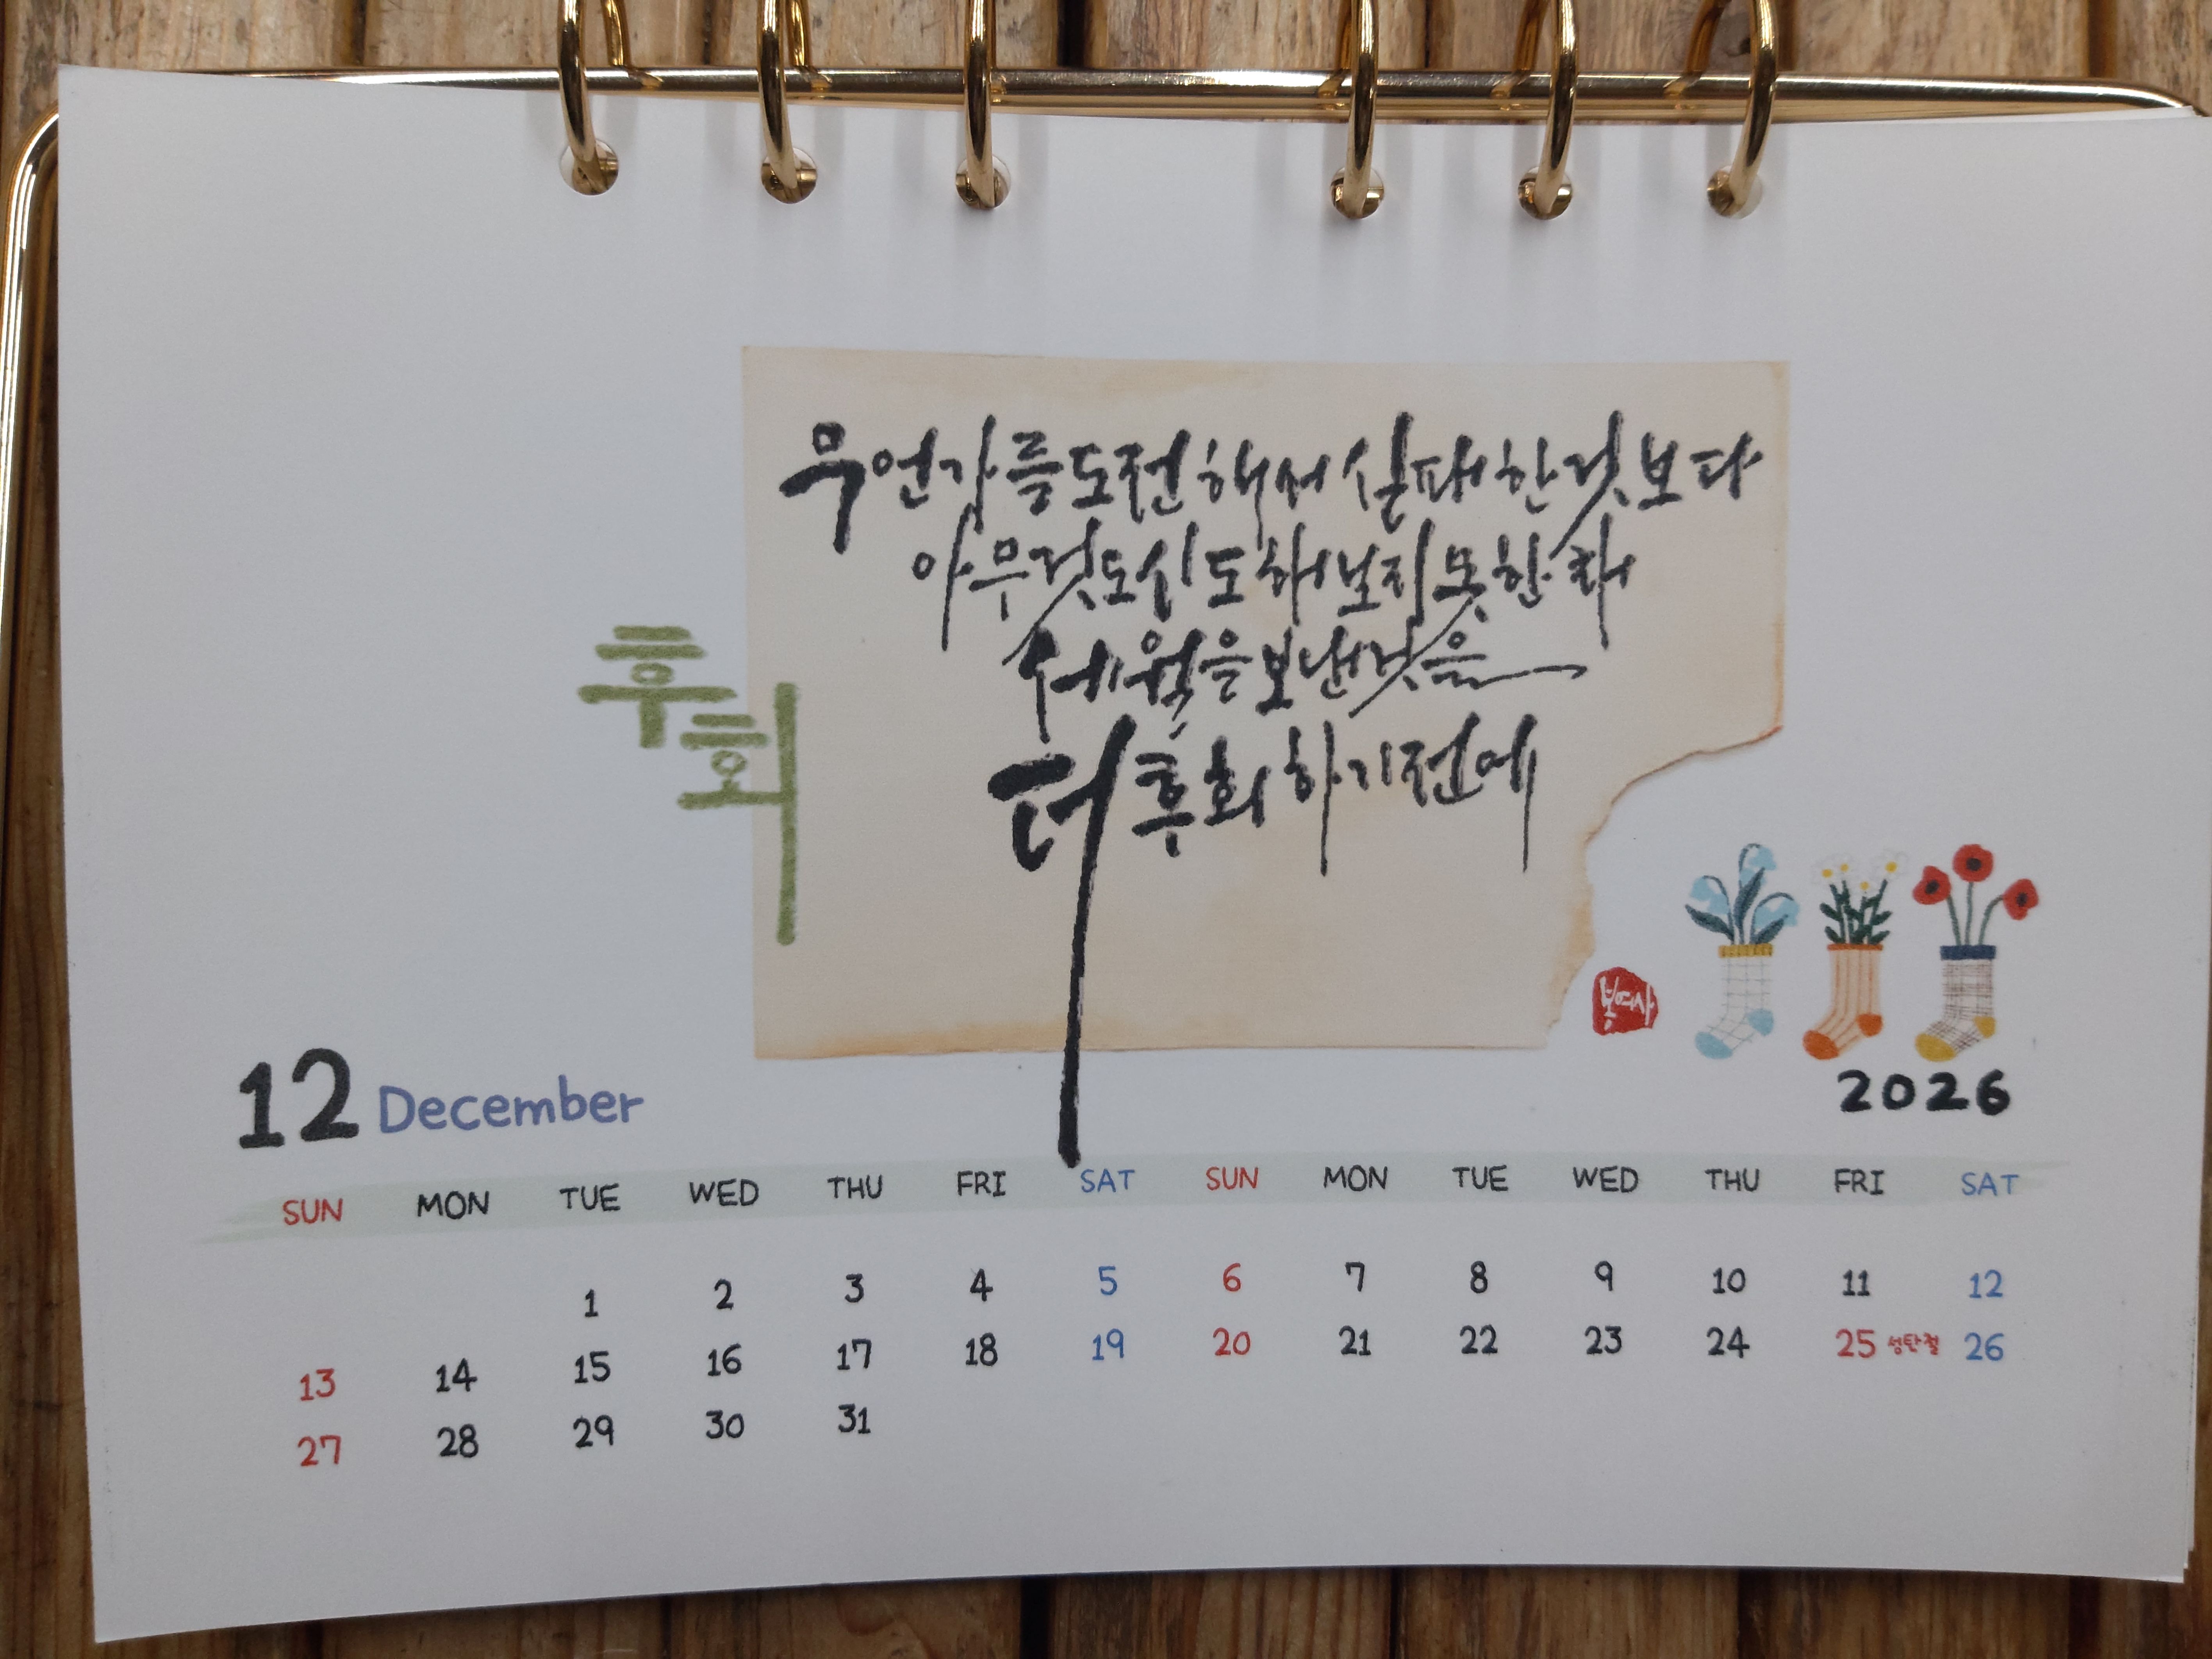 무언가를도전해서실패한것보다
아무것도시도해보지못한채
세월을보낸것을
더후회하기전에
후회
봉여사
12 December
2026
SUN MON TUE WED THU FRI SAT SUN MON TUE WED THU FRI SAT
1 2 3 4 5 6 7 8 9 10 11 12
13 14 15 16 17 18 19 20 21 22 23 24 25 성탄절 26
27 28 29 30 31